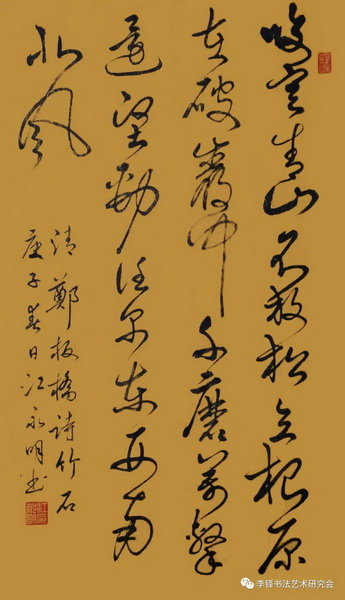 咬定青山不放松立根原
在破巖中千磨萬擊
還堅勁任尔东西南
北风
清鄭板橋詩竹石
庚子春日江永明书
李铎书法艺术研究会